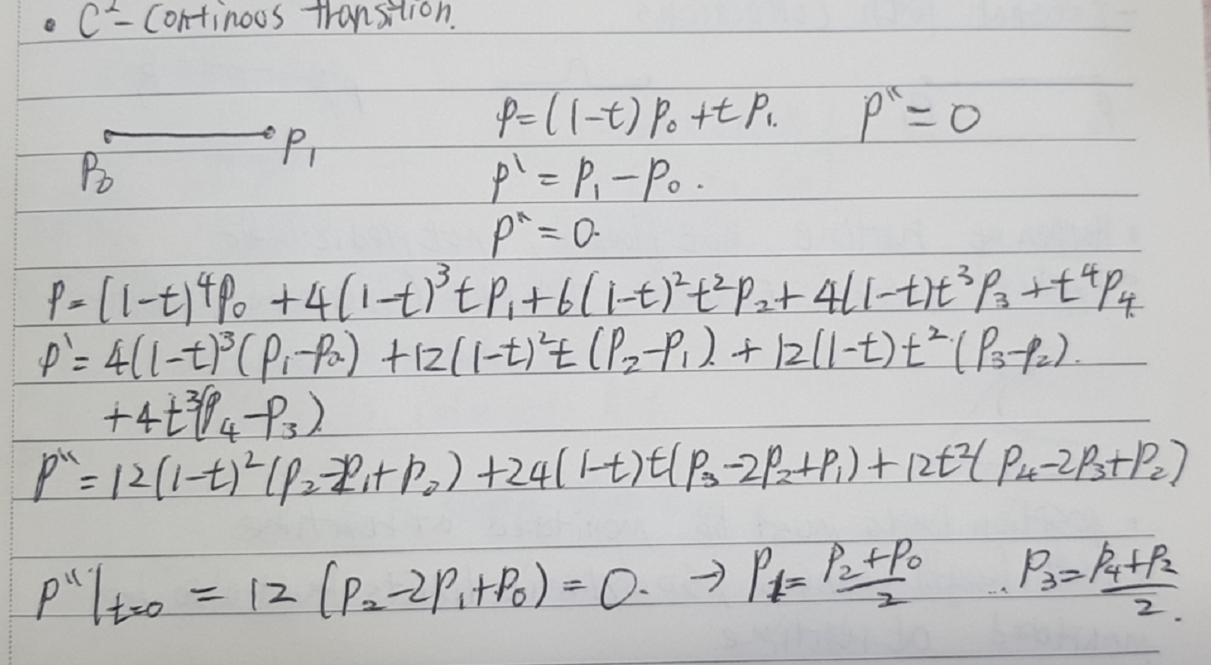 • C²-Continous transition.
P=(1-t)P₀+tP₁. P''=0
P₀ P₁
P'=P₁-P₀.
P''=0.
P=(1-t)⁴P₀+4(1-t)³tP₁+6(1-t)²t²P₂+4(1-t)t³P₃+t⁴P₄
P'=4(1-t)³(P₁-P₀)+12(1-t)²t(P₂-P₁)+12(1-t)t²(P₃-P₂).
+4t³(P₄-P₃)
P''=12(1-t)²(P₂-2P₁+P₀)+24(1-t)t(P₃-2P₂+P₁)+12t²(P₄-2P₃+P₂)
P''|t=0 = 12(P₂-2P₁+P₀)=0. → P₁=(P₂+P₀)/2 .. P₃=(P₄+P₂)/2.